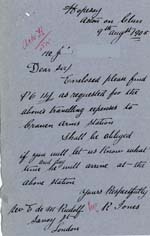 Hopesay
Aston on Clun
9th Augst 1905
Dear Sir
Enclosed please find
as requested for the
above travelling expenses to
Craven Arms Station
Shall be obliged
if you will let us know what
time he will arrive at the
above station
Yours Respectfully
R Jones
Rev E. de M. Rudolf
Savoy St
London